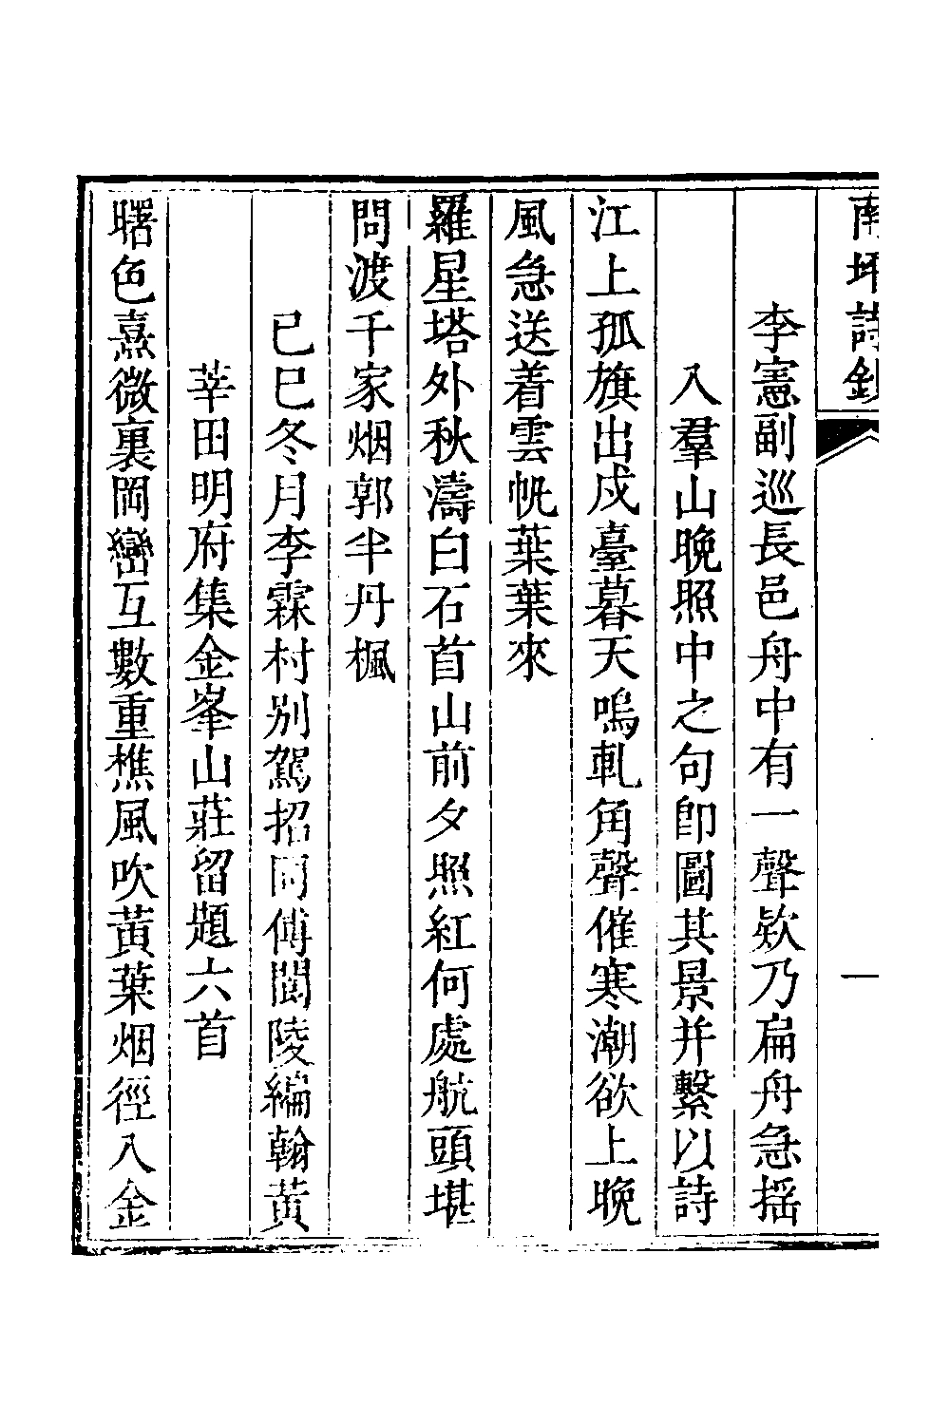 南坪詩鈔
一
李憲副巡長邑舟中有一聲欵乃扁舟急揺
入羣山晩照中之句卽圖其景并繫以詩
江上孤旗出戍臺暮天嗚軋角聲催寒潮欲上晩
風急送着雲帆葉葉來
羅星塔外秋濤白石首山前夕照紅何處航頭堪
問渡千家烟郭半丹楓
己巳冬月李霖村别駕招同傅閬陵編翰黄
莘田明府集金峯山莊留題六首
曙色熹微裏岡巒互數重樵風吹黄葉烟徑入金